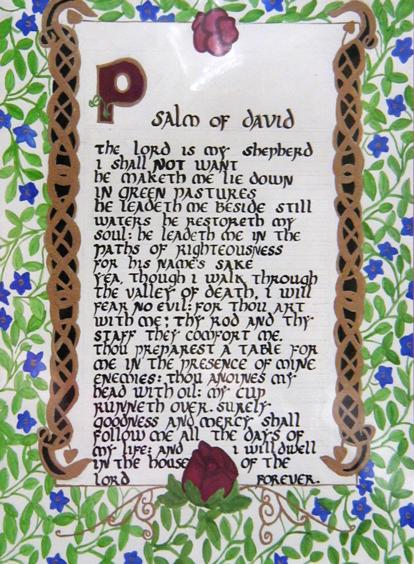 Psalm of David
the Lord is my shepherd
i shall NOT want
he maketh me lie down
in green pastures
he leadeth me beside still
waters he restoreth my
soul: he leadeth me in the
paths of righteousness
for his name's sake
yea, though i walk through
the valley of death, i will
fear no evil: for thou art
with me; thy rod and thy
staff they comfort me.
thou preparest a table for
me in the presence of mine
enemies: thou anoines my
head with oil: my cup
runneth over. surely
goodness and mercy shall
follow me all the days of
my life: and i will dwell
in the house of the
lord forever.